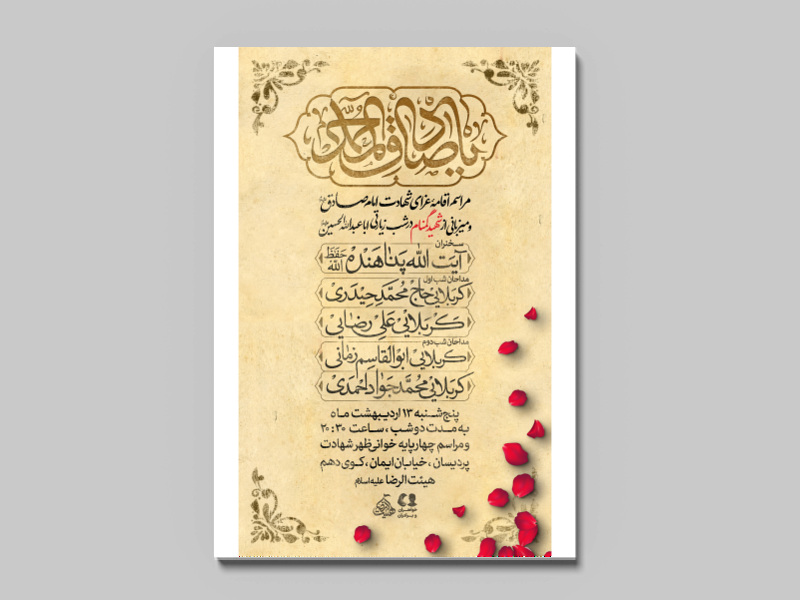 یا صادق آل محمد
مراسم اقامهٔ عزای شهادت امام صادق
و میزبانی از شهید گمنام در شب زیارتی اباعبدالله الحسین
سخنران
آیت الله پناهنده حَفَظَهُ الله
مداحان شب اول
کربلایی حاج محمّد حیدری
کربلایی علی رضایی
مداحان شب دوم
کربلایی ابوالقاسم زمانی
کربلایی محمّدجواد احمدی
پنج‌شنبه ۱۳ اردیبهشت ماه
به مدت دو شب ، ساعت ۲۰:۳۰
و مراسم چهارپایه خوانی ظهر شهادت
پردیسان ، خیابان ایمان ، کوی دهم
هیئت الرضا علیه‌السلام
خواهران
و برادران